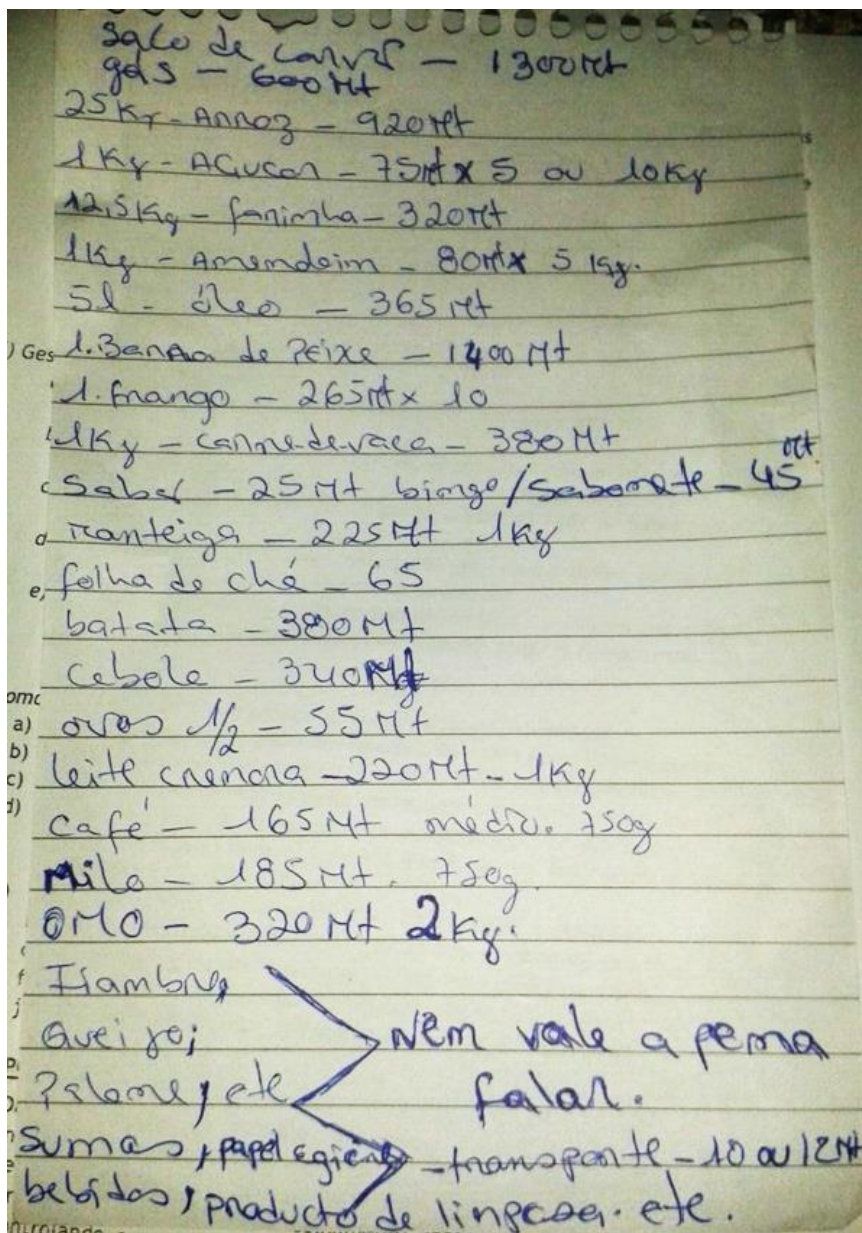 saco de carvão — 1300Mt
gás — 600Mt
25Kg - Arroz - 920Mt
1Kg - Açucar - 75Mt x 5 ou 10Kg
12,5Kg - farinha - 320Mt
) Ges
1Kg - Amendoim - 80Mt x 5 Kg.
5l - óleo — 365 Mt
1. Barra de Peixe — 1400 Mt
1. frango - 265Mt x 10
1Kg - carne-de-vaca - 380 Mt
Sabão - 25 Mt bingo/Sabonete - 45 Mt
d manteiga - 225Mt 1Kg
e, folha de chá - 65
batata - 380 Mt
Cebola - 340Mt
a) ovos 1/2 - 55 Mt
b)
c) leite cremora - 220Mt - 1Kg
d)
Café - 165 Mt médio. 750g
Milo - 185 Mt. 750g.
OMO - 320 Mt 2Kg.
f
j
Queijo; Nem vale a pena
Palone, etc falar.
Sumos, papel - transporte - 10 ou 12Mt
bebidas, producto de etc.